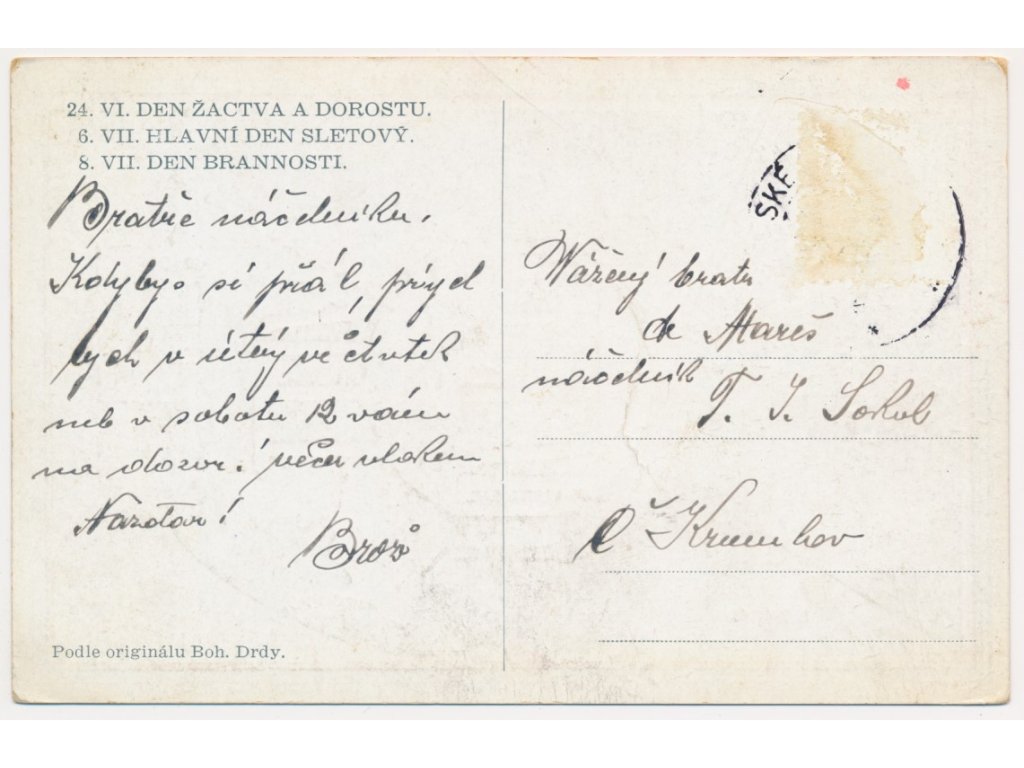 24. VI. DEN ŽACTVA A DOROSTU.
6. VII. HLAVNÍ DEN SLETOVÝ.
8. VII. DEN BRANNOSTI.
Bratře náčelníku.
Kdybys si přál, přijel
bych v úterý ve čtvrtek
neb v sobotu 12 vám
na dozor! večer vlakem
Nazdar!
Brož
Podle originálu Boh. Drdy.
SKÉ
Vážený bratr
Mareš
náčelník
T. J. Sokol
Č Krumlov